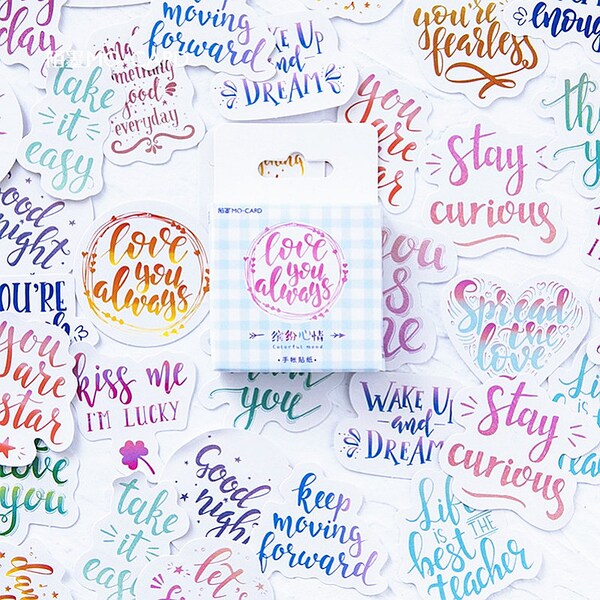 day
love
you
moving
forward
WAKE UP
and
DREAM
you're
fearless
enough
take
it
easy
something
good
everyday
you
are
star
Stay
curious
good
night
love
you
always
MO·CARD
love
you
always
缤纷心情
Colorful mood
•手帐贴纸•
you
Spread
the
love
YOU'RE
you
are
star
kiss me
I'M LUCKY
you
WAKE UP
and
DREAM
Stay
curious
Life
is
love
you
take
it
easy
Good
night
keep
moving
forward
Life
is THE
best
teacher
let's